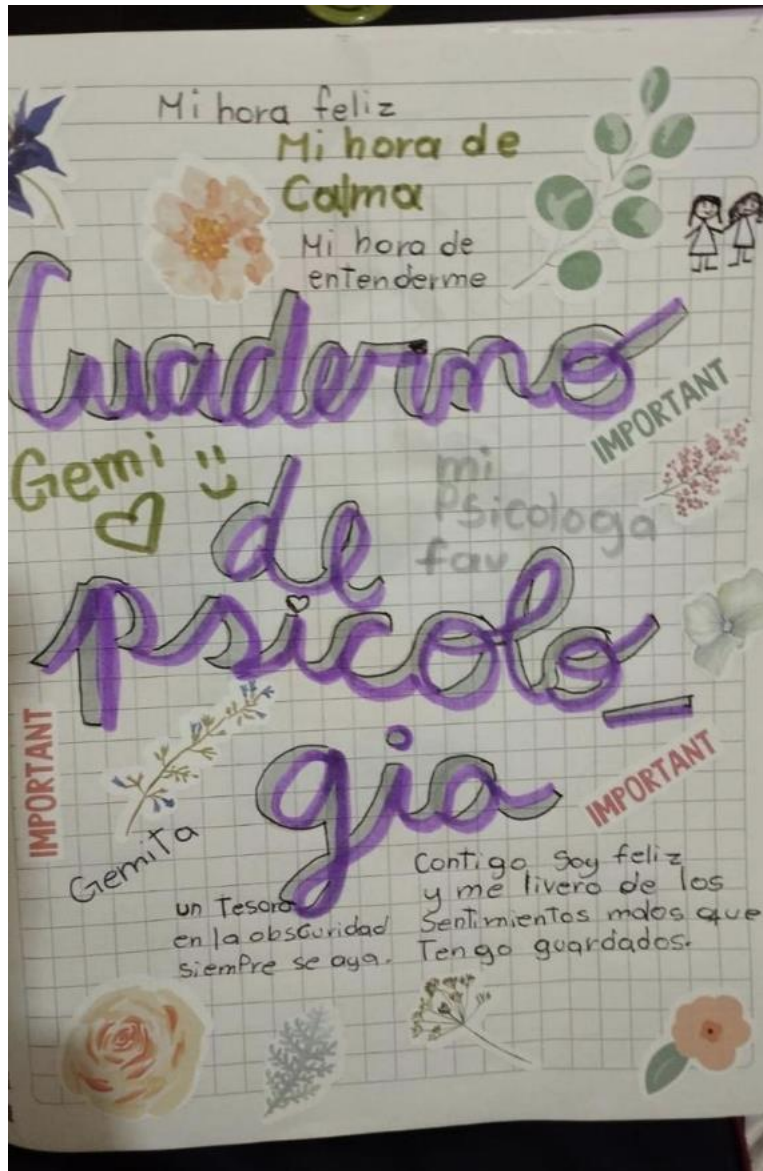 Mi hora feliz
Mi hora de
Calma
Mi hora de
entenderme
Cuaderno
IMPORTANT
Gemi
mi
Psicologa
fav
de
psicolo_
gia
IMPORTANT
IMPORTANT
Gemita
un Tesoro
en la obscuridad
siempre se aya.
Contigo Soy feliz
y me livero de los
Sentimientos malos que
Tengo guardados.